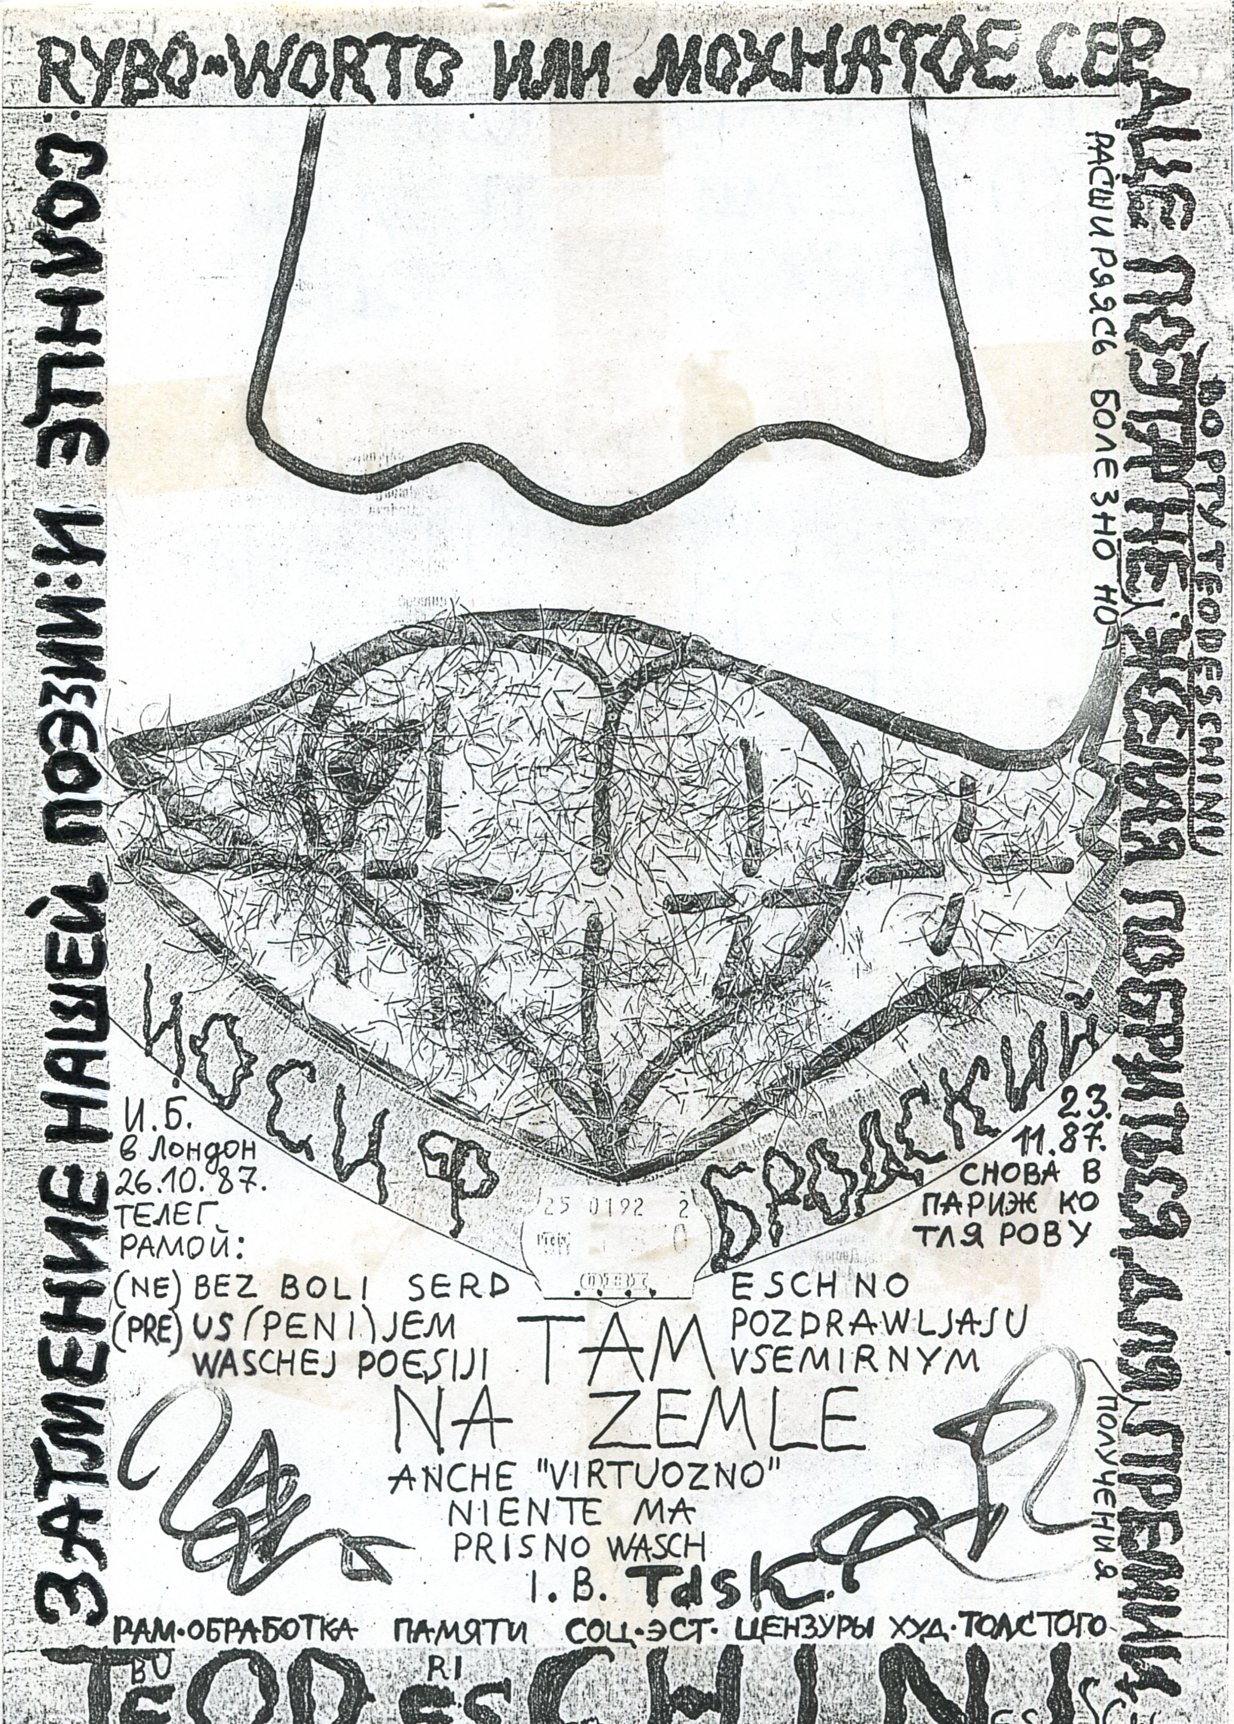 RYBO-WORTO ИЛИ МОХНАТОЕ СЕР
ДЦЕ ПОЭТА НЕ ЖЕЛАЯ ПОБРИТЬСЯ ДЛЯ ПРЕМИИ
РАСШИРЯЯСЬ БОЛЕЗНО НО
ВО РТУ TEODESCHINI
ПОЛУЧЕНИЯ
ЗАТМЕНИЕ НАШЕЙ ПОЭЗИИ: И
ИОСИФ БРОДСКИЙ
25 0192 2
Preis
И.Б.
в Лондон
26.10.87.
ТЕЛЕГ
РАМОЙ:
23.
11.87.
СНОВА В
ПАРИЖ КО
ТЛЯРОВУ
(NE) BEZ BOLI SERD ESCHNO
(PRE) US(PENI)JEM TAM POZDRAWLJAJU
WASCHEJ POESIJI VSEMIRNYM
NA ZEMLE
ANCHE "VIRTUOZNO"
NIENTE MA
PRISNO WASCH
I. B. Tdsk.
РАМ·ОБРАБОТКА ПАМЯТИ СОЦ·ЭСТ· ЦЕНЗУРЫ ХУД·ТОЛСТОГО
BU RI
TEODESCHINI